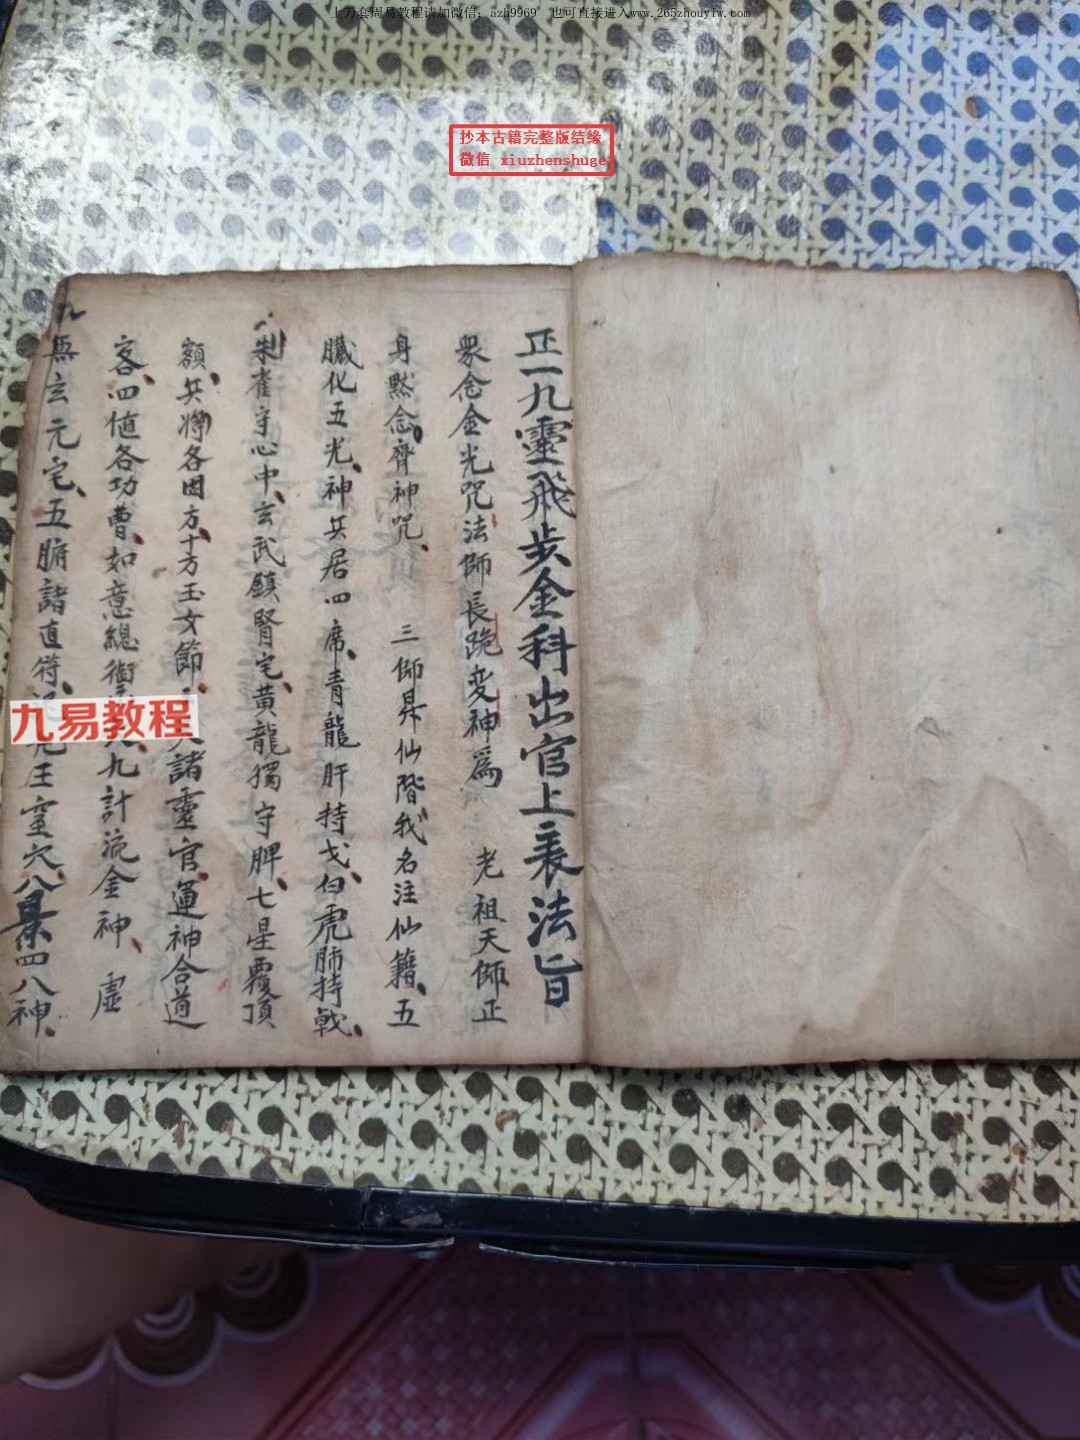 上万套周易教程请加微信：azh9969 也可直接进入www.265zhouyiw.com
抄本古籍完整版结缘
微信 xiuzhenshuge
正一九靈飛步金科出官上表法旨
衆念金光咒法師長跪变神爲 老祖天師正
身黙念齊神咒、 三師昇仙階我名注仙籍、五
臟化五光、神兵居四席、青龍肝持戈、白虎肺持戟、
朱雀守心中、玄武鎮腎宅、黄龍獨守脾、七星覆頂
額、兵将各因方、十方玉女節、諸靈官、運神合道
客、四值各功曹、如意總衛 九計流金神、虛
無玄元宅、五腑諸直符、 王室穴、八景四八神、
九易教程